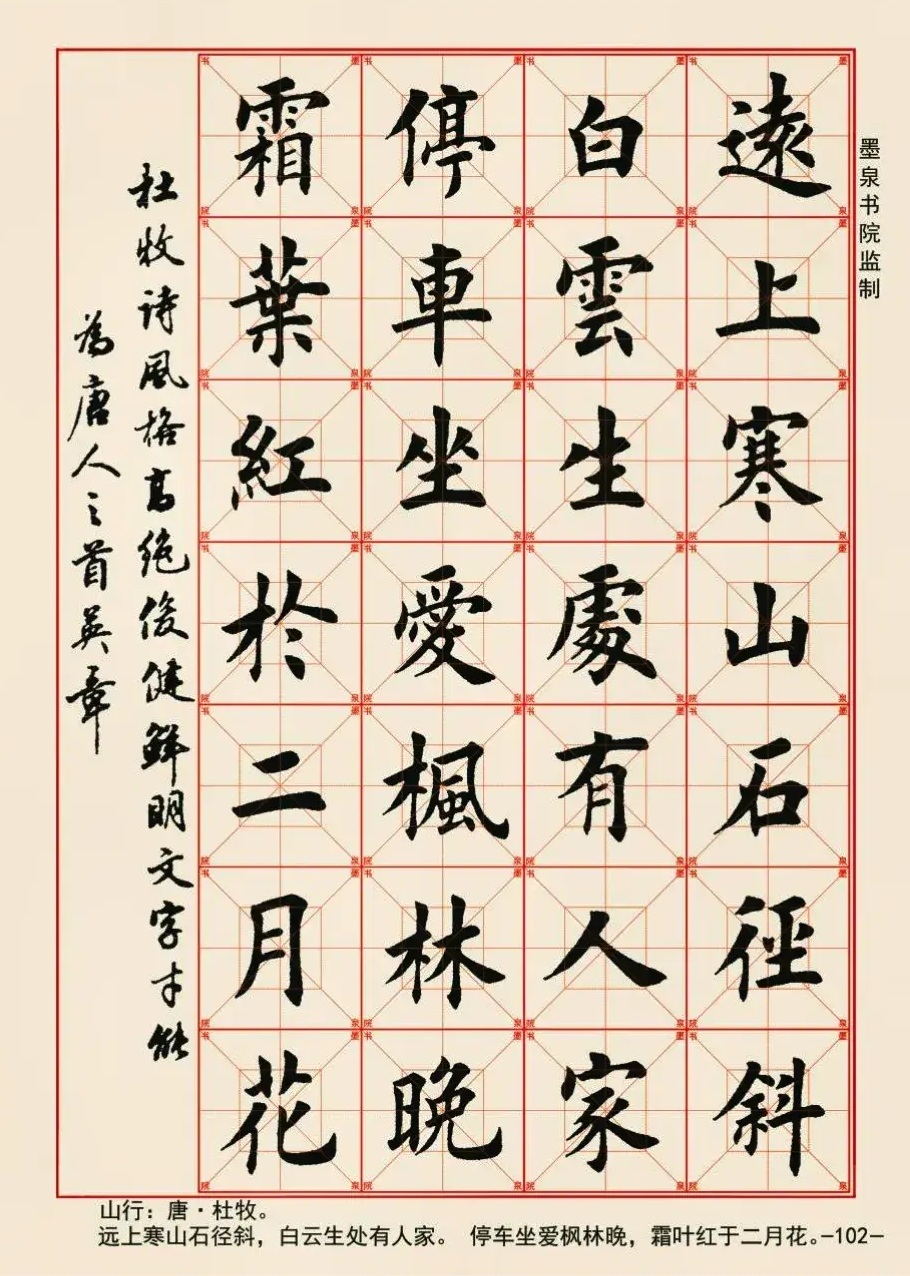 墨泉书院监制
遠上寒山石徑斜
白雲生處有人家
停車坐愛楓林晚
霜葉紅於二月花
杜牧诗風格高絶俊健鮮明文字才能
為唐人之首英章
山行：唐·杜牧。
远上寒山石径斜，白云生处有人家。 停车坐爱枫林晚，霜叶红于二月花。-102-